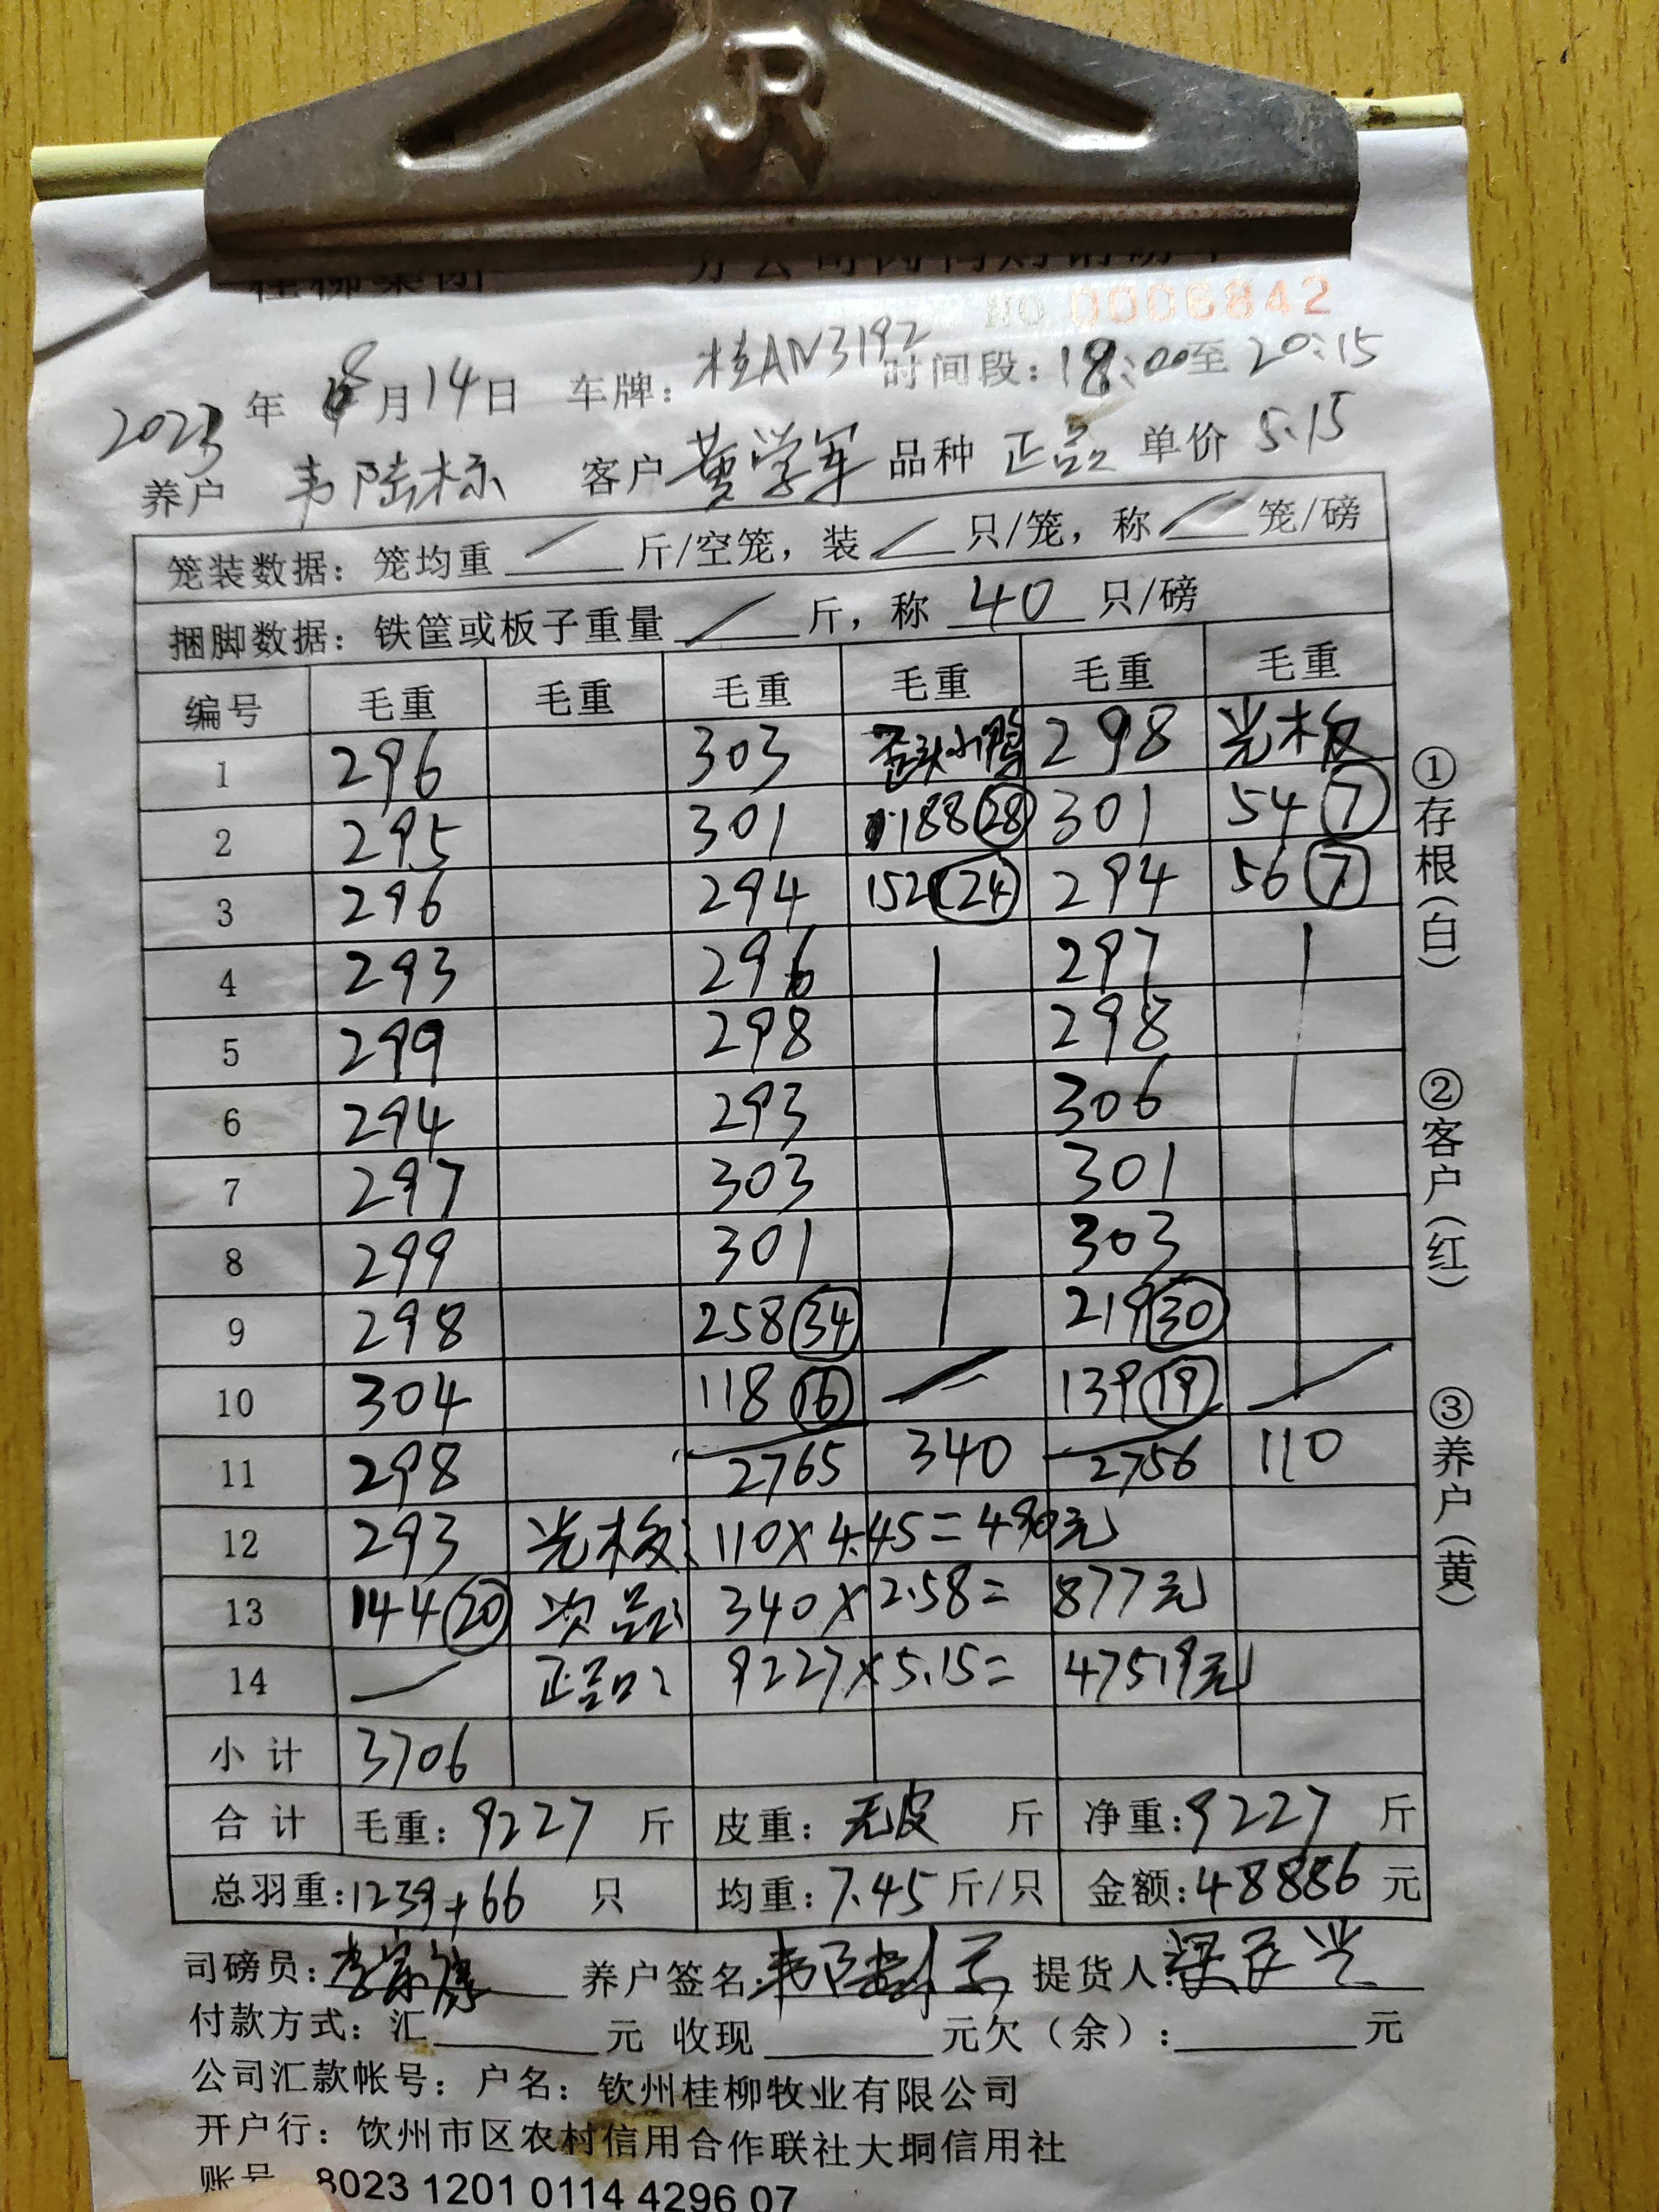 JR
No 0006842
2023 年 8月14日 车牌：桂AN3192 时间段：18:00至20:15
养户 韦陆标 客户 黄学军 品种 正品 单价 5.15
笼装数据：笼均重 / 斤/空笼，装 / 只/笼，称 / 笼/磅
捆脚数据：铁筐或板子重量 / 斤，称 40 只/磅
编号 毛重 毛重 毛重 毛重 毛重 毛重
1 296 303 歪头小鸭 298 光板
2 295 301 188(28) 301 54(7)
3 296 294 152(24) 294 56(7)
4 293 296 297
5 299 298 298
6 294 293 306
7 297 303 301
8 299 301 303
9 298 258(34) 219(30)
10 304 118(16) 139(19)
11 298 2765 340 2756 110
12 293 光板：110×4.45=490元
13 144(20) 次品：340×2.58=877元
14 — 正品：9227×5.15=47519元
小计 3706
合计 毛重：9227 斤 皮重：无皮 斤 净重：9227 斤
总羽重：1239+66 只 均重：7.45斤/只 金额：48886 元
司磅员： 养户签名： 提货人：
付款方式：汇 元 收现 元欠（余）： 元
公司汇款帐号：户名：钦州桂柳牧业有限公司
开户行：饮州市区农村信用合作联社大垌信用社
账号 8023 1201 0114 4296 07
①存根（白）
②客户（红）
③养户（黄）